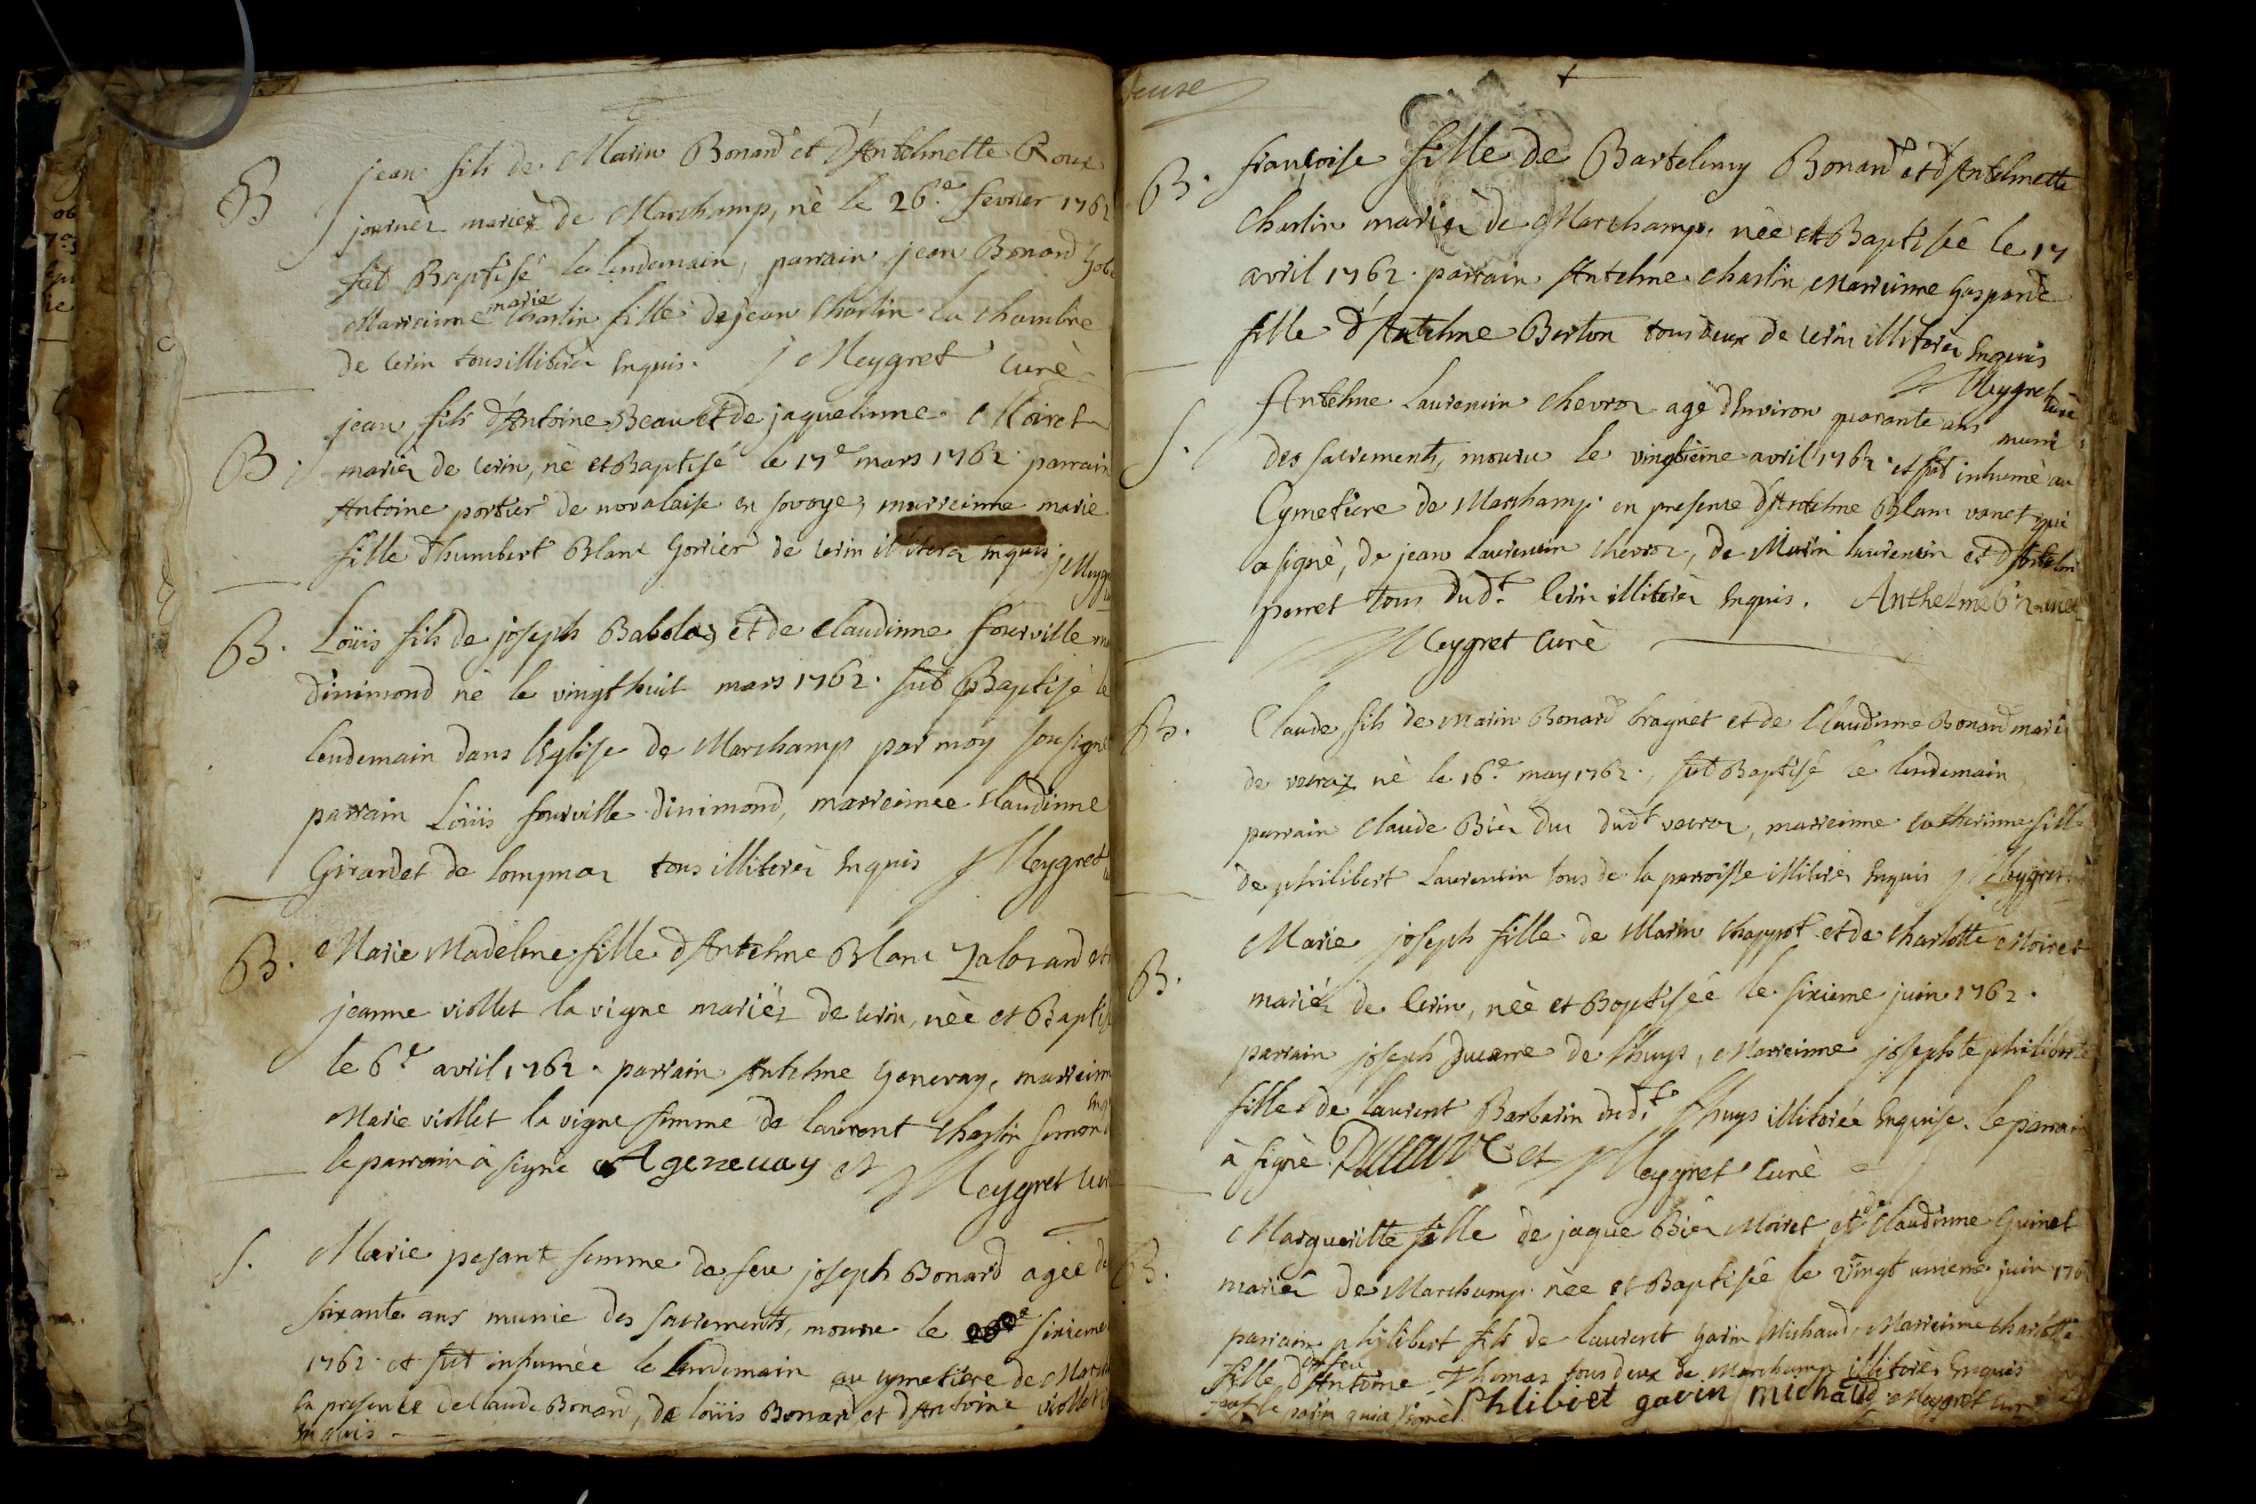 B
jean fils de Marin Bonard et d'Antelmette Roux
journèz mariéz de Marchamp, nè le 26.e fevrier 1762
fut Baptisé le lendemain, parrain jean Bonard
Marreinne marie Charlin fille de jean Charlin la Chambre
de cerin tous illiterèz Enquis. j Meygret Curè
B.
jean fils d'Antoine Beau et de jaquelinne Moiret
marièz de Cerin, nè et Baptisé le 17.e mars 1762 parrain
Antoine portier de novalaise en savoye, marreinne marie
fille d'humbert Blanc Gorrier de Cerin illiterèz Enquis j Meyg
B.
Loüis fils de joseph Babolaz et de Claudinne fourville
dinimond nè le vingt huit mars 1762. fut Baptisé le
lendemain dans l'Eglise de Marchamp par moy sousigné
parrain Loüis fourville dinimond, marreinnee Claudinne
Girardet de Lompnaz tous illiterèz Enquis j Meygret
B.
Marie Madelene fille d'Antelme Blanc Jalorand et
jeanne viollet la vigne mariéz de cerin, nèe et Baptis
le 6.e avril 1762. parrain Antelme Genevay, marreinn
Marie viollet la vigne femme de laurent Charlin Simond
Enq
le parrain à signé A genevay et j Meygret cur
S.
Marie pesant femme de feu joseph Bonard agée de
soixante ans munie des sacrements, mourue le sixieme
1762. et fut inhumèe le lendemain au cymetiere de March
En presence de Claude Bonard, de loüis Bonard et d'Antoine viollet
Enquis.
B.
françoise fille de Bartelemy Bonard et d'Antelmette
Charlin marièz de Marchamp. nèe et Baptisée le 17
avril 1762. parrain Antelme Charlin, Marreinne Gasparde
fille d'Antelme Berton tous deux de cerin illiterèz Enquis
j Meygret Curè
S.
Antelme Laurencin Chevroz agé d'Environ quarante ans muni
des sacrements, mouru le vingtième avril 1762. et fut inhumè au
Cymetiere de Marchamp. en presense d'Antelme Blanc vanet qui
a signè, de jean laurencin Chevroz, de Marin laurencin et d'Antelme
perret tous dud.t Cerin illiterèz Enquis. Anthelme Blanc
j Meygret Curè
B.
Claude fils de Marin Bonard braquet et de Claudinne Bonard mari
de vecraz nè le 16.e may 1762., fut Baptisé le lendemain
parrain Claude Bièz duc dud.t vecroz, marreinne Cathrinne fille
de philibert Laurencin tous de la parroisse illiterès Enquis j Meygret
B.
Marie joseph fille de Marin Chappot et de Charlotte Moiret
mariéz de Cerin, nèe et Baptisée le sixieme juin 1762.
parrain joseph Ducarre de l'huys, Marreinne josephte philiberte
fille de laurent Barbarin dud.t L'huys illiterée Enquise. le parrain
à signè. Ducarre et j Meygret Curè
B.
Margueritte fille de jaque Bièz Moiret et de Claudinne Guinet
marièz de Marchamp. nèe et Baptisée le vingt unieme juin 1762
parrain philibert fils de laurent Gavin Michaud, Marreinne Charlotte
fille de feu d'Antoine Thomas tous deux de Marchamp illiterès Enquis
sauf le parin qui a signè. Phlibiet gavin michaud j Meygret cur